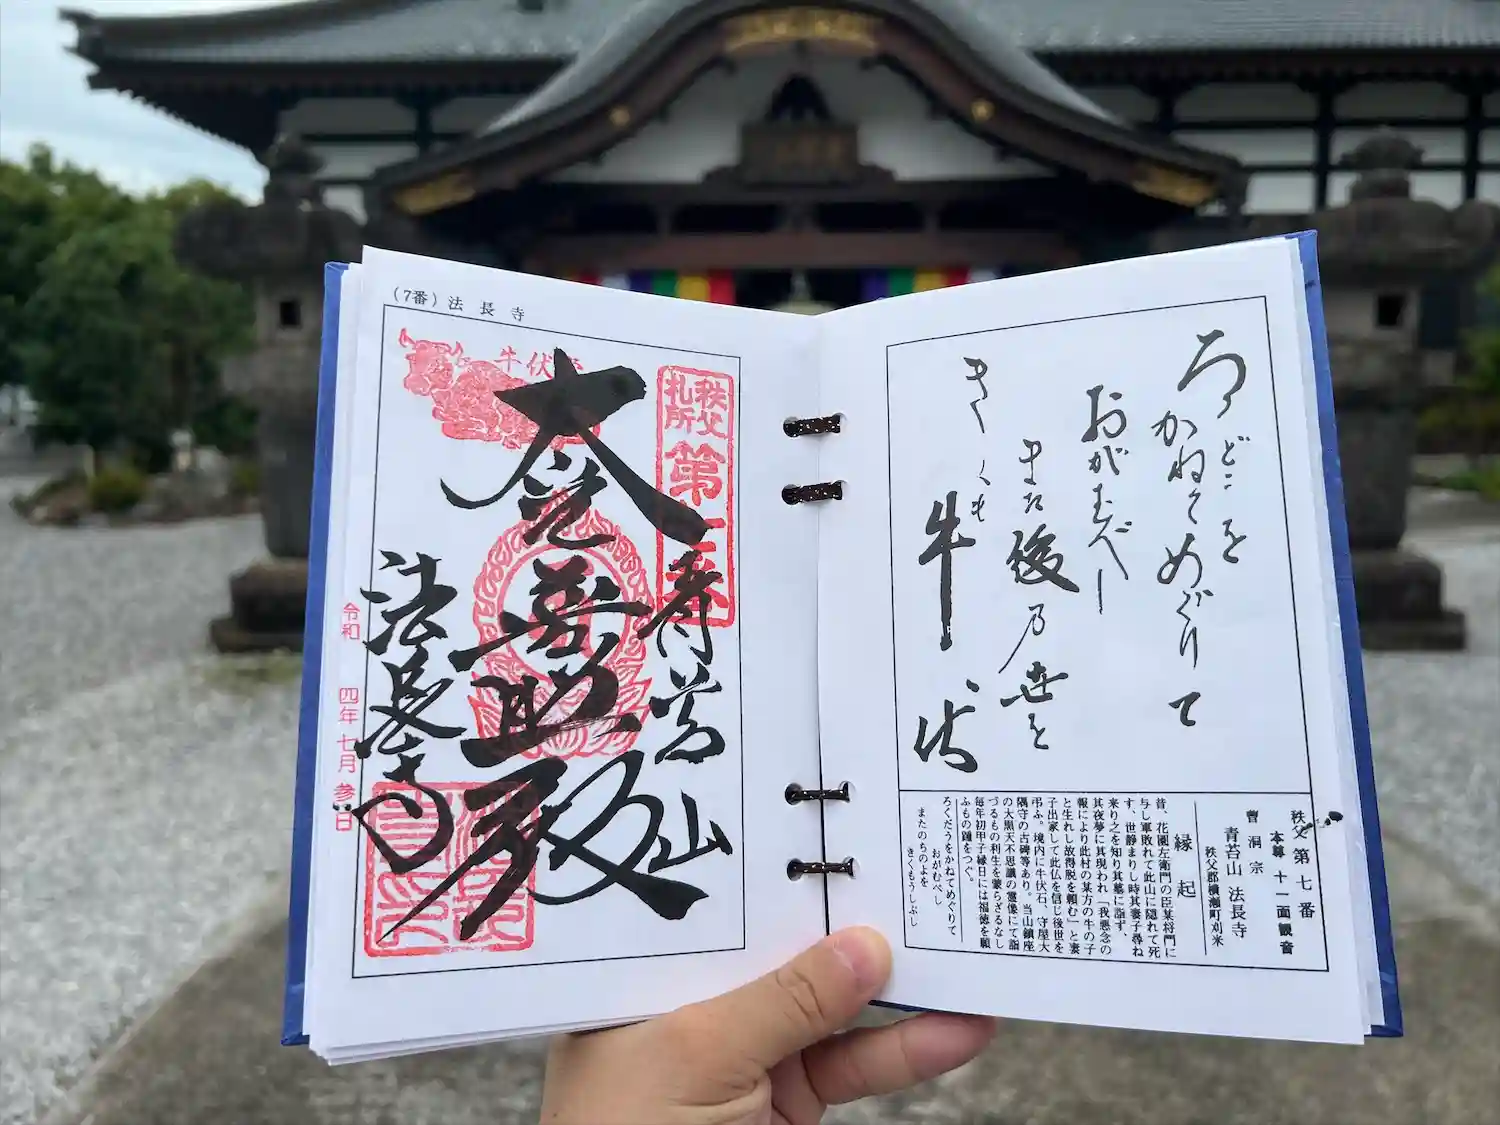 (7番)法長寺
牛伏堂
秩父札所
第七番
青苔山
大慈普照殿
法長寺
令和四年七月参日
ろくどうを
かねてめぐりて
おがむべし
また後乃世を
きくも
牛伏
秩父第七番
本尊 十一面観音
曹洞宗
青苔山 法長寺
秩父郡横瀬町刈米
縁起
昔、花園左衛門の臣某将門に
与し軍敗れて此山に隠れて死
す、世静まりし時其妻子尋ね
来り之を知り其墓に詣ず、
其夜夢に其現われ「我悪念の
報により此村の某方の牛の子
と生れし故得脱を頼む」と妻
子出家して此仏を信じ後世を
弔ふ。境内に牛伏石、守屋大
隅守の古碑等あり。当山鎮座
の大黒天不思議の霊像にて詣
づるもの利生を蒙らざるなし
毎年初甲子縁日には福徳を願
ふもの踵をつぐ。
ろくだうをかねてめぐりて
おがむべし
またのちのよを
きくもうしぶし